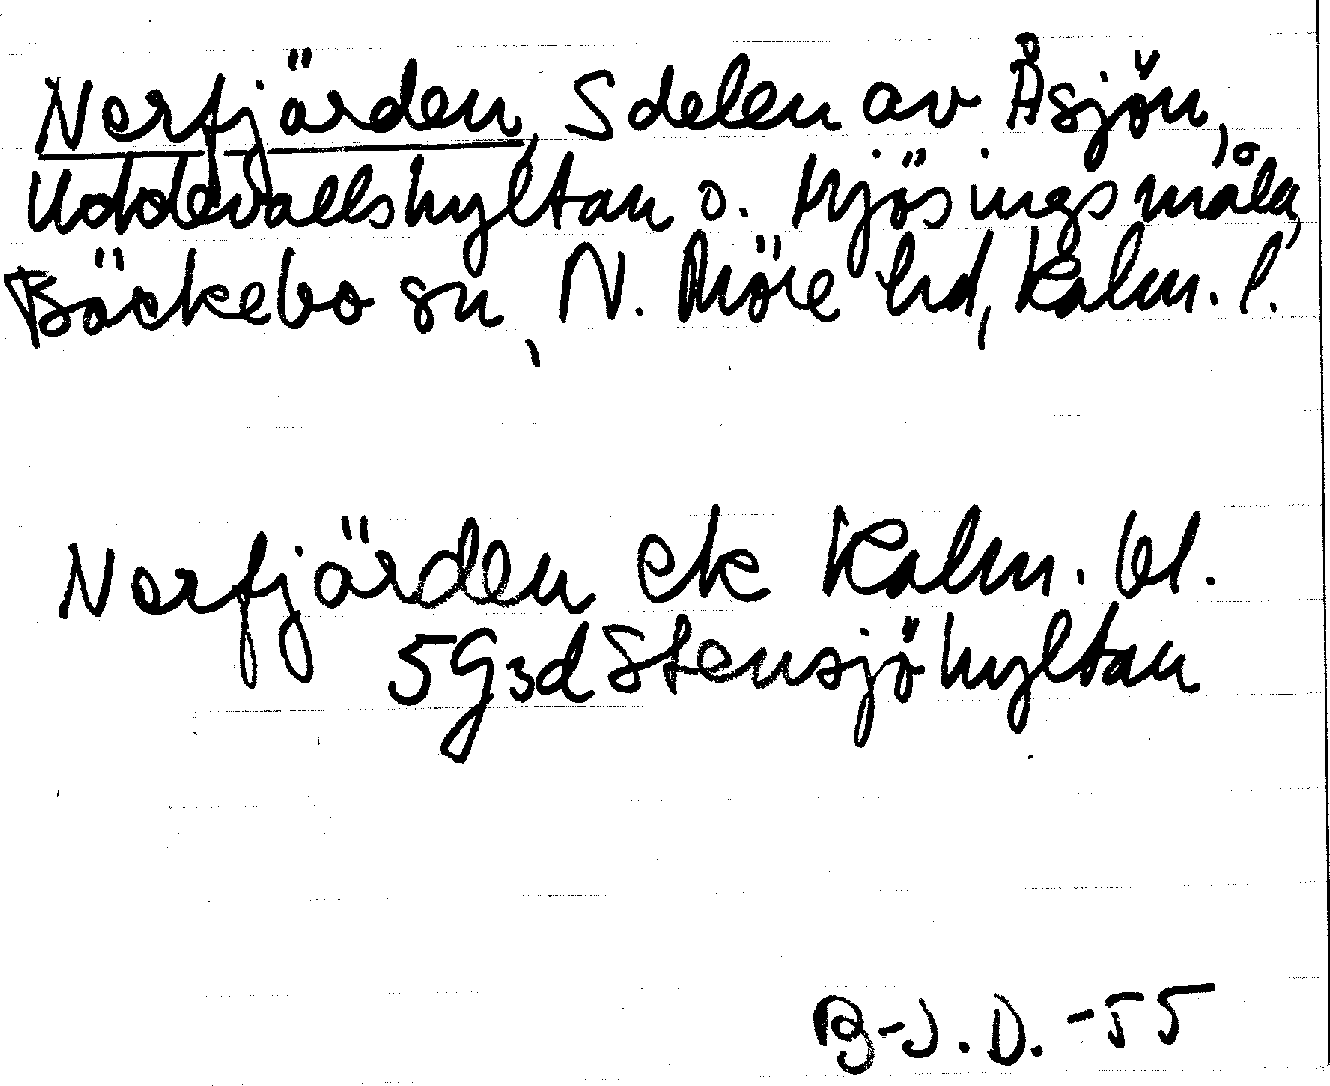 Nerfjärden, S delen av Åsjön,
Uddevallshyltan o. Mjösingsmåla,
Bäckebo sn, N. Möre hd, Kalm. l.
Nerfjärden ek Kalm. bl.
5G3d Stensjöhyltan
B-J. D. -55